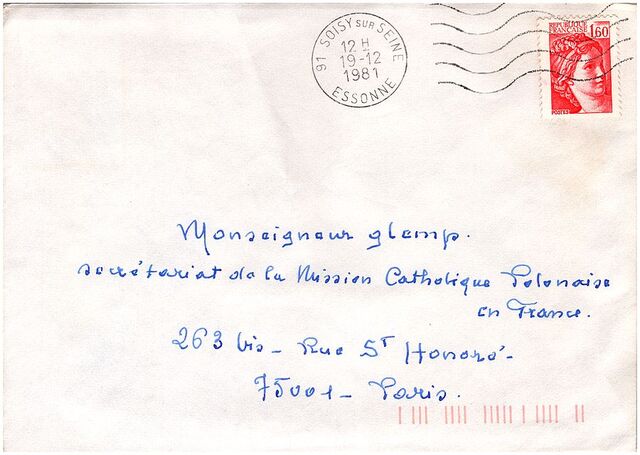 91 SOISY SUR SEINE
12 H
19-12
1981
ESSONNE
REPUBLIQUE
FRANCAISE
1,60
POSTES
Monseigneur glemp.
secrétariat de la Mission Catholique Polonaise
en France.
263 bis - Rue ST Honoré -
75001 - Paris.